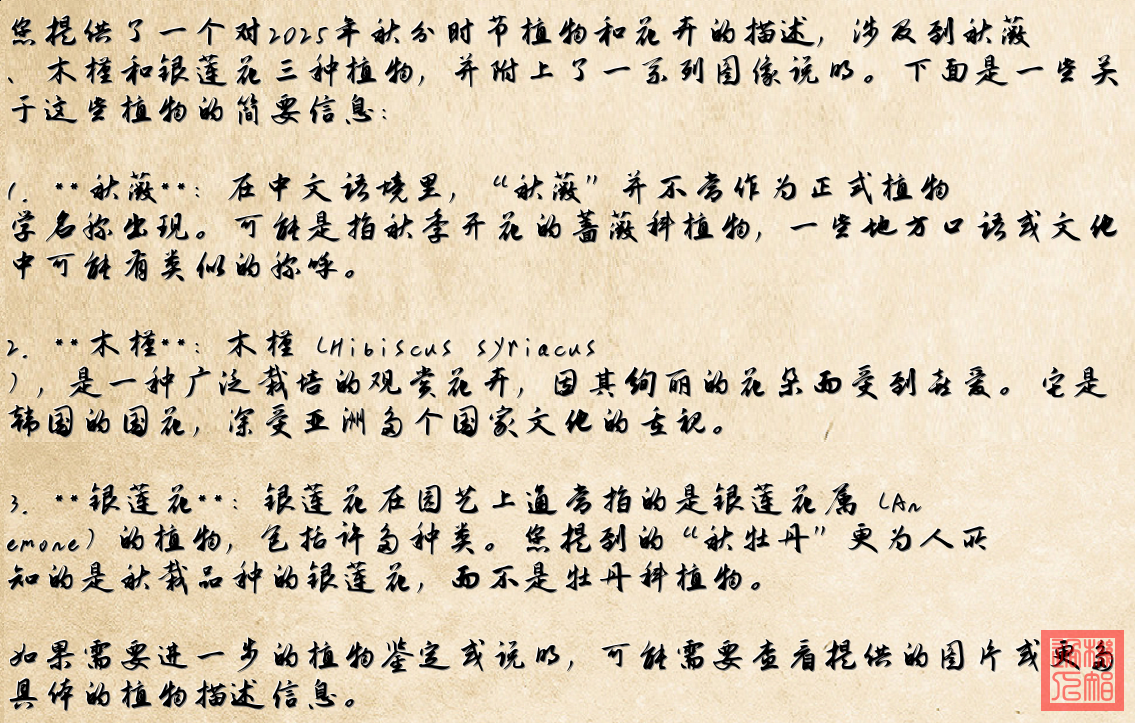 您提供了一个对2025年秋分时节植物和花卉的描述，涉及到秋薇
、木槿和银莲花三种植物，并附上了一系列图像说明。下面是一些关
于这些植物的简要信息：
1. **秋薇**：在中文语境里，“秋薇”并不常作为正式植物
学名称出现。可能是指秋季开花的蔷薇科植物，一些地方口语或文化
中可能有类似的称呼。
2. **木槿**：木槿（Hibiscus syriacus
），是一种广泛栽培的观赏花卉，因其绚丽的花朵而受到喜爱。它是
韩国的国花，深受亚洲多个国家文化的重视。
3. **银莲花**：银莲花在园艺上通常指的是银莲花属（An
emone）的植物，包括许多种类。您提到的“秋牡丹”更为人所
知的是秋栽品种的银莲花，而不是牡丹科植物。
如果需要进一步的植物鉴定或说明，可能需要查看提供的图片或更多
具体的植物描述信息。